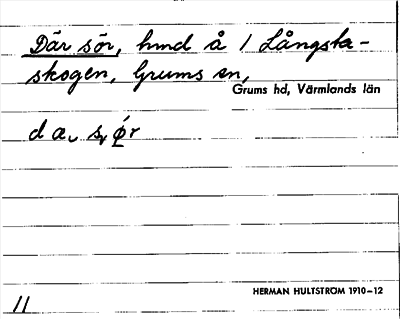 Där sör, hmd å 1 Långsta-
skogen, Grums sn,
Grums hd, Värmlands län
d æ s ǿr
HERMAN HULTSTRÖM 1910-12
11